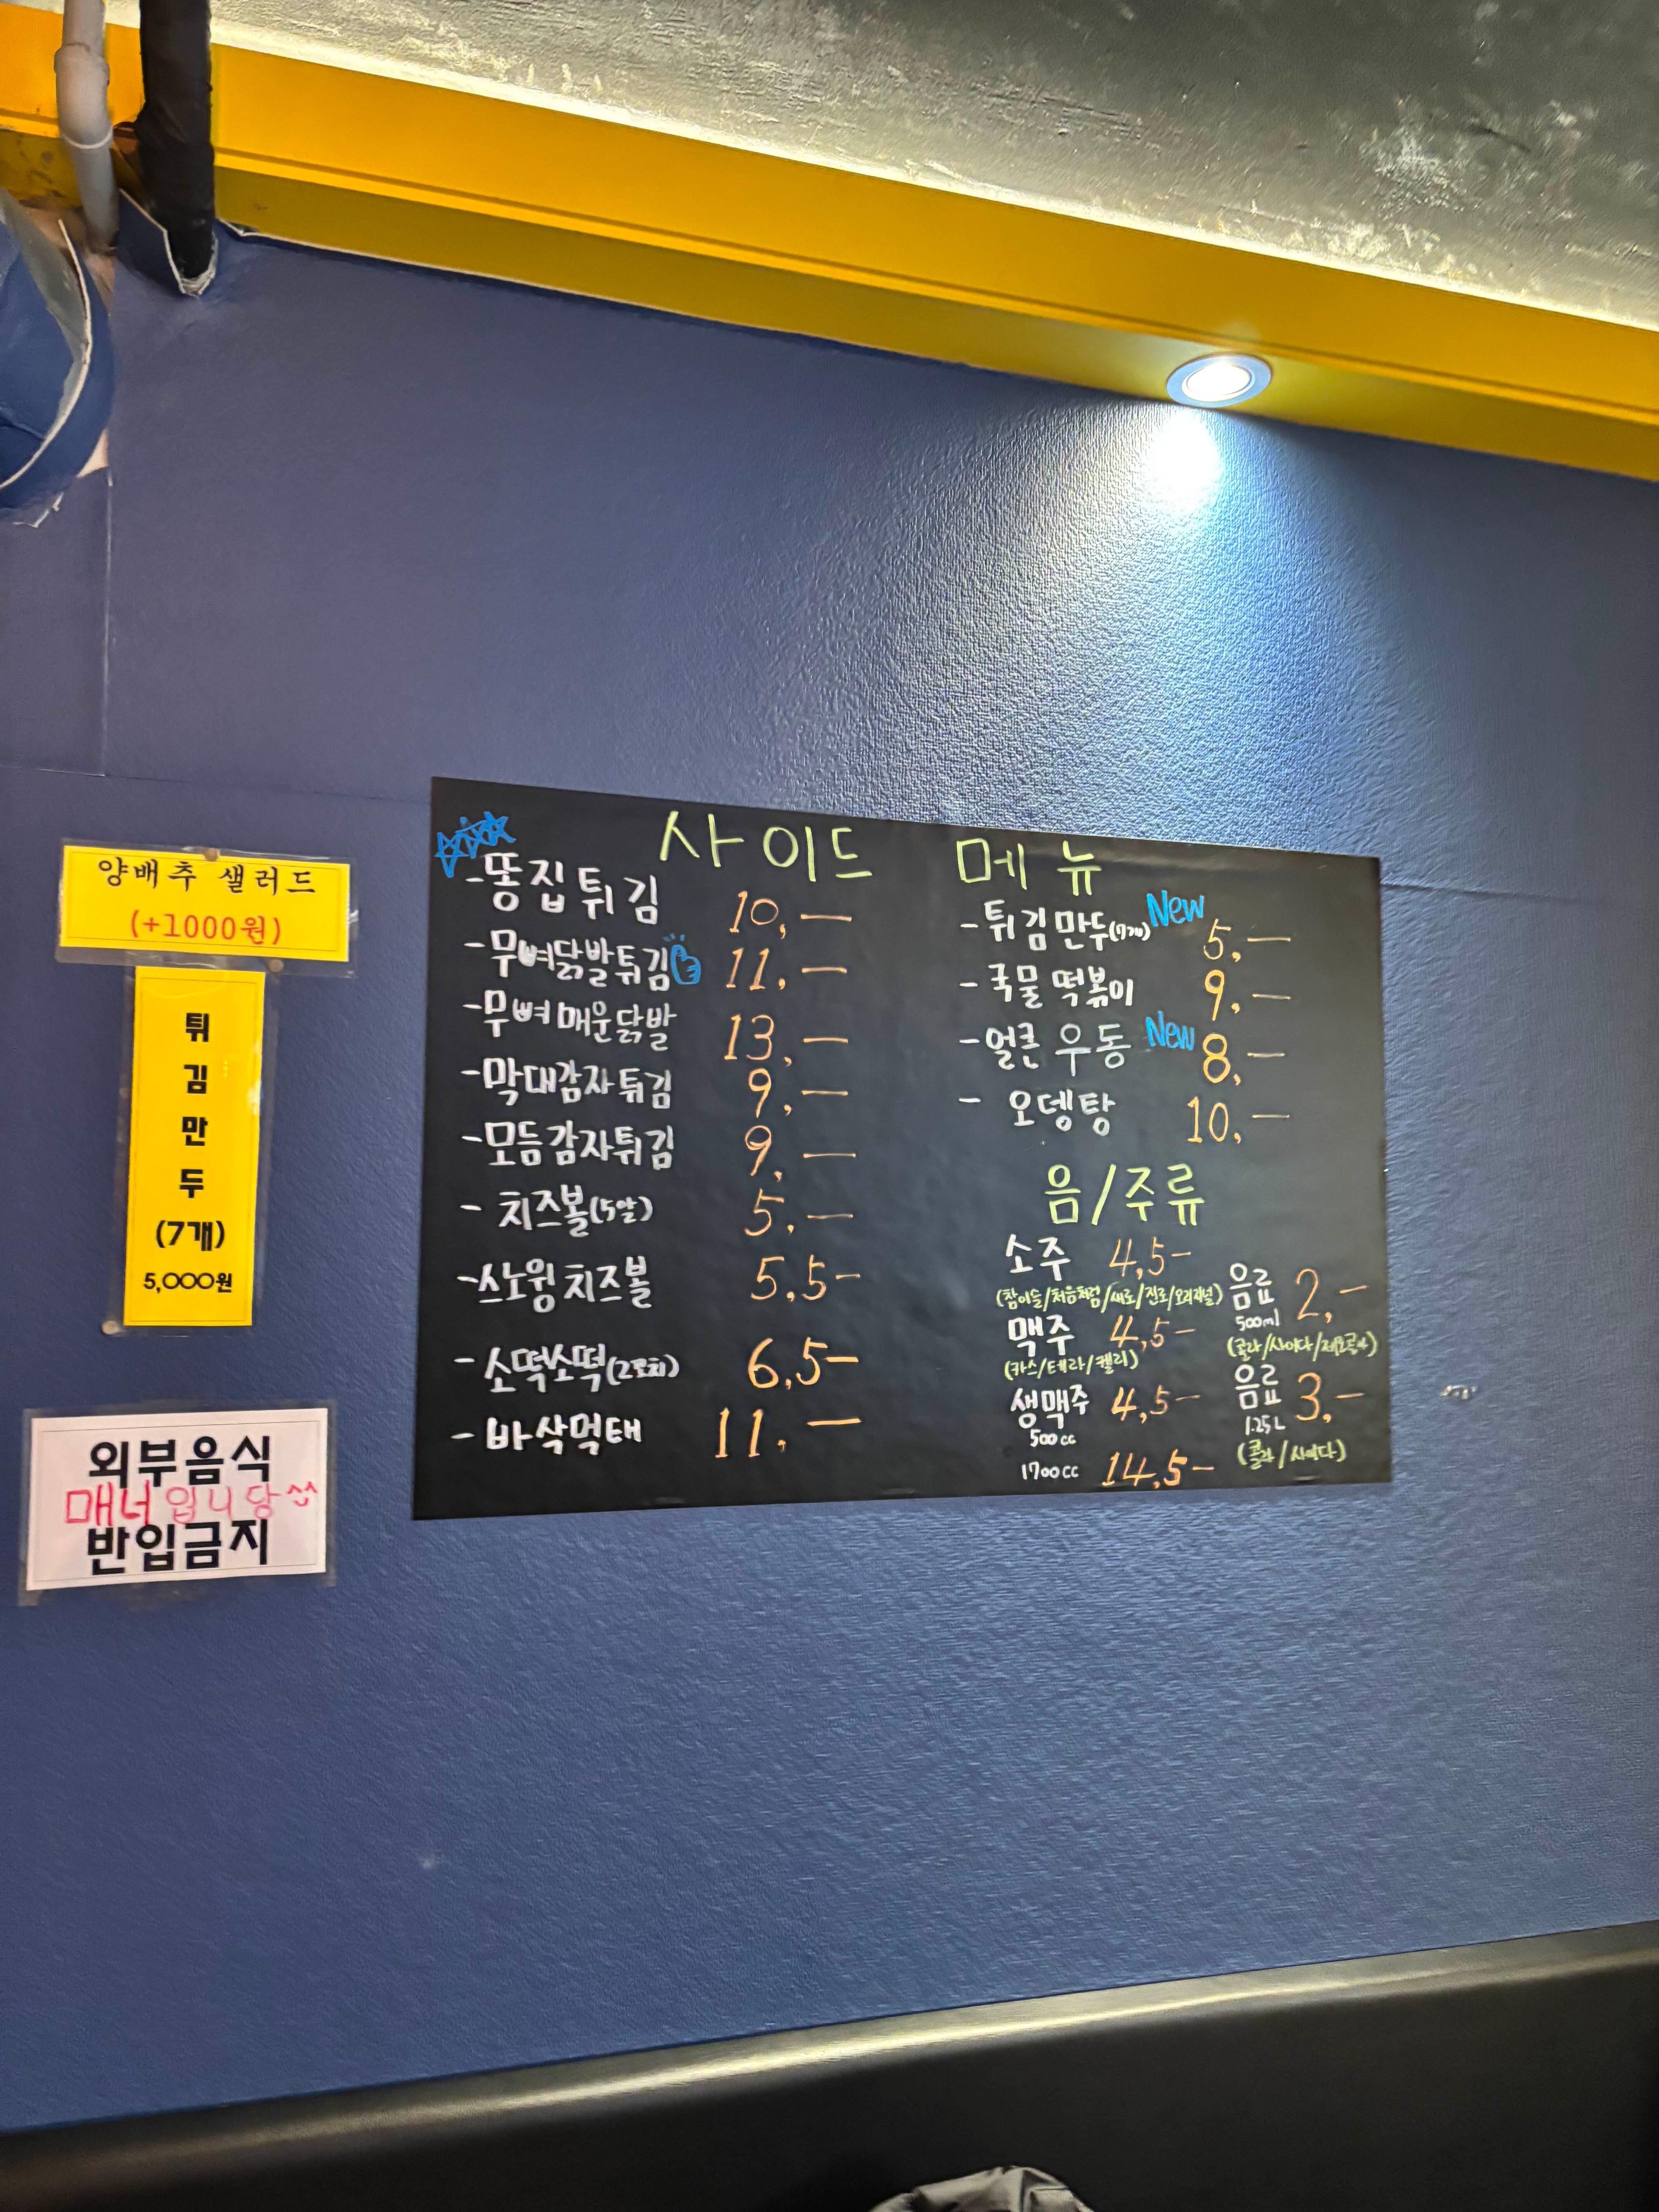 양배추 샐러드
(+1000원)
튀
김
만
두
(7개)
5,000원
외부음식
매너입니당^^
반입금지
사이드 메뉴
-똥집튀김 10,—
-무뼈닭발튀김 11,—
-무뼈매운닭발 13,—
-막대감자튀김 9,—
-모듬감자튀김 9,—
- 치즈볼(5알) 5,—
-스노윙치즈볼 5,5-
- 소떡소떡(2꼬치) 6,5-
- 바삭먹태 11,—
-튀김만두(7개) New 5,—
- 국물떡볶이 9,—
-얼큰우동 New 8,—
- 오뎅탕 10,—
음/주류
소주 4,5-
(참이슬/처음처럼/새로/진로/오리지널)
맥주 4,5-
(카스/테라/켈리)
생맥주 4,5-
500cc
1700cc 14,5-
음료 2,-
500ml
(콜라/사이다/제로콜라)
음료 3,-
1.25L
(콜라/사이다)